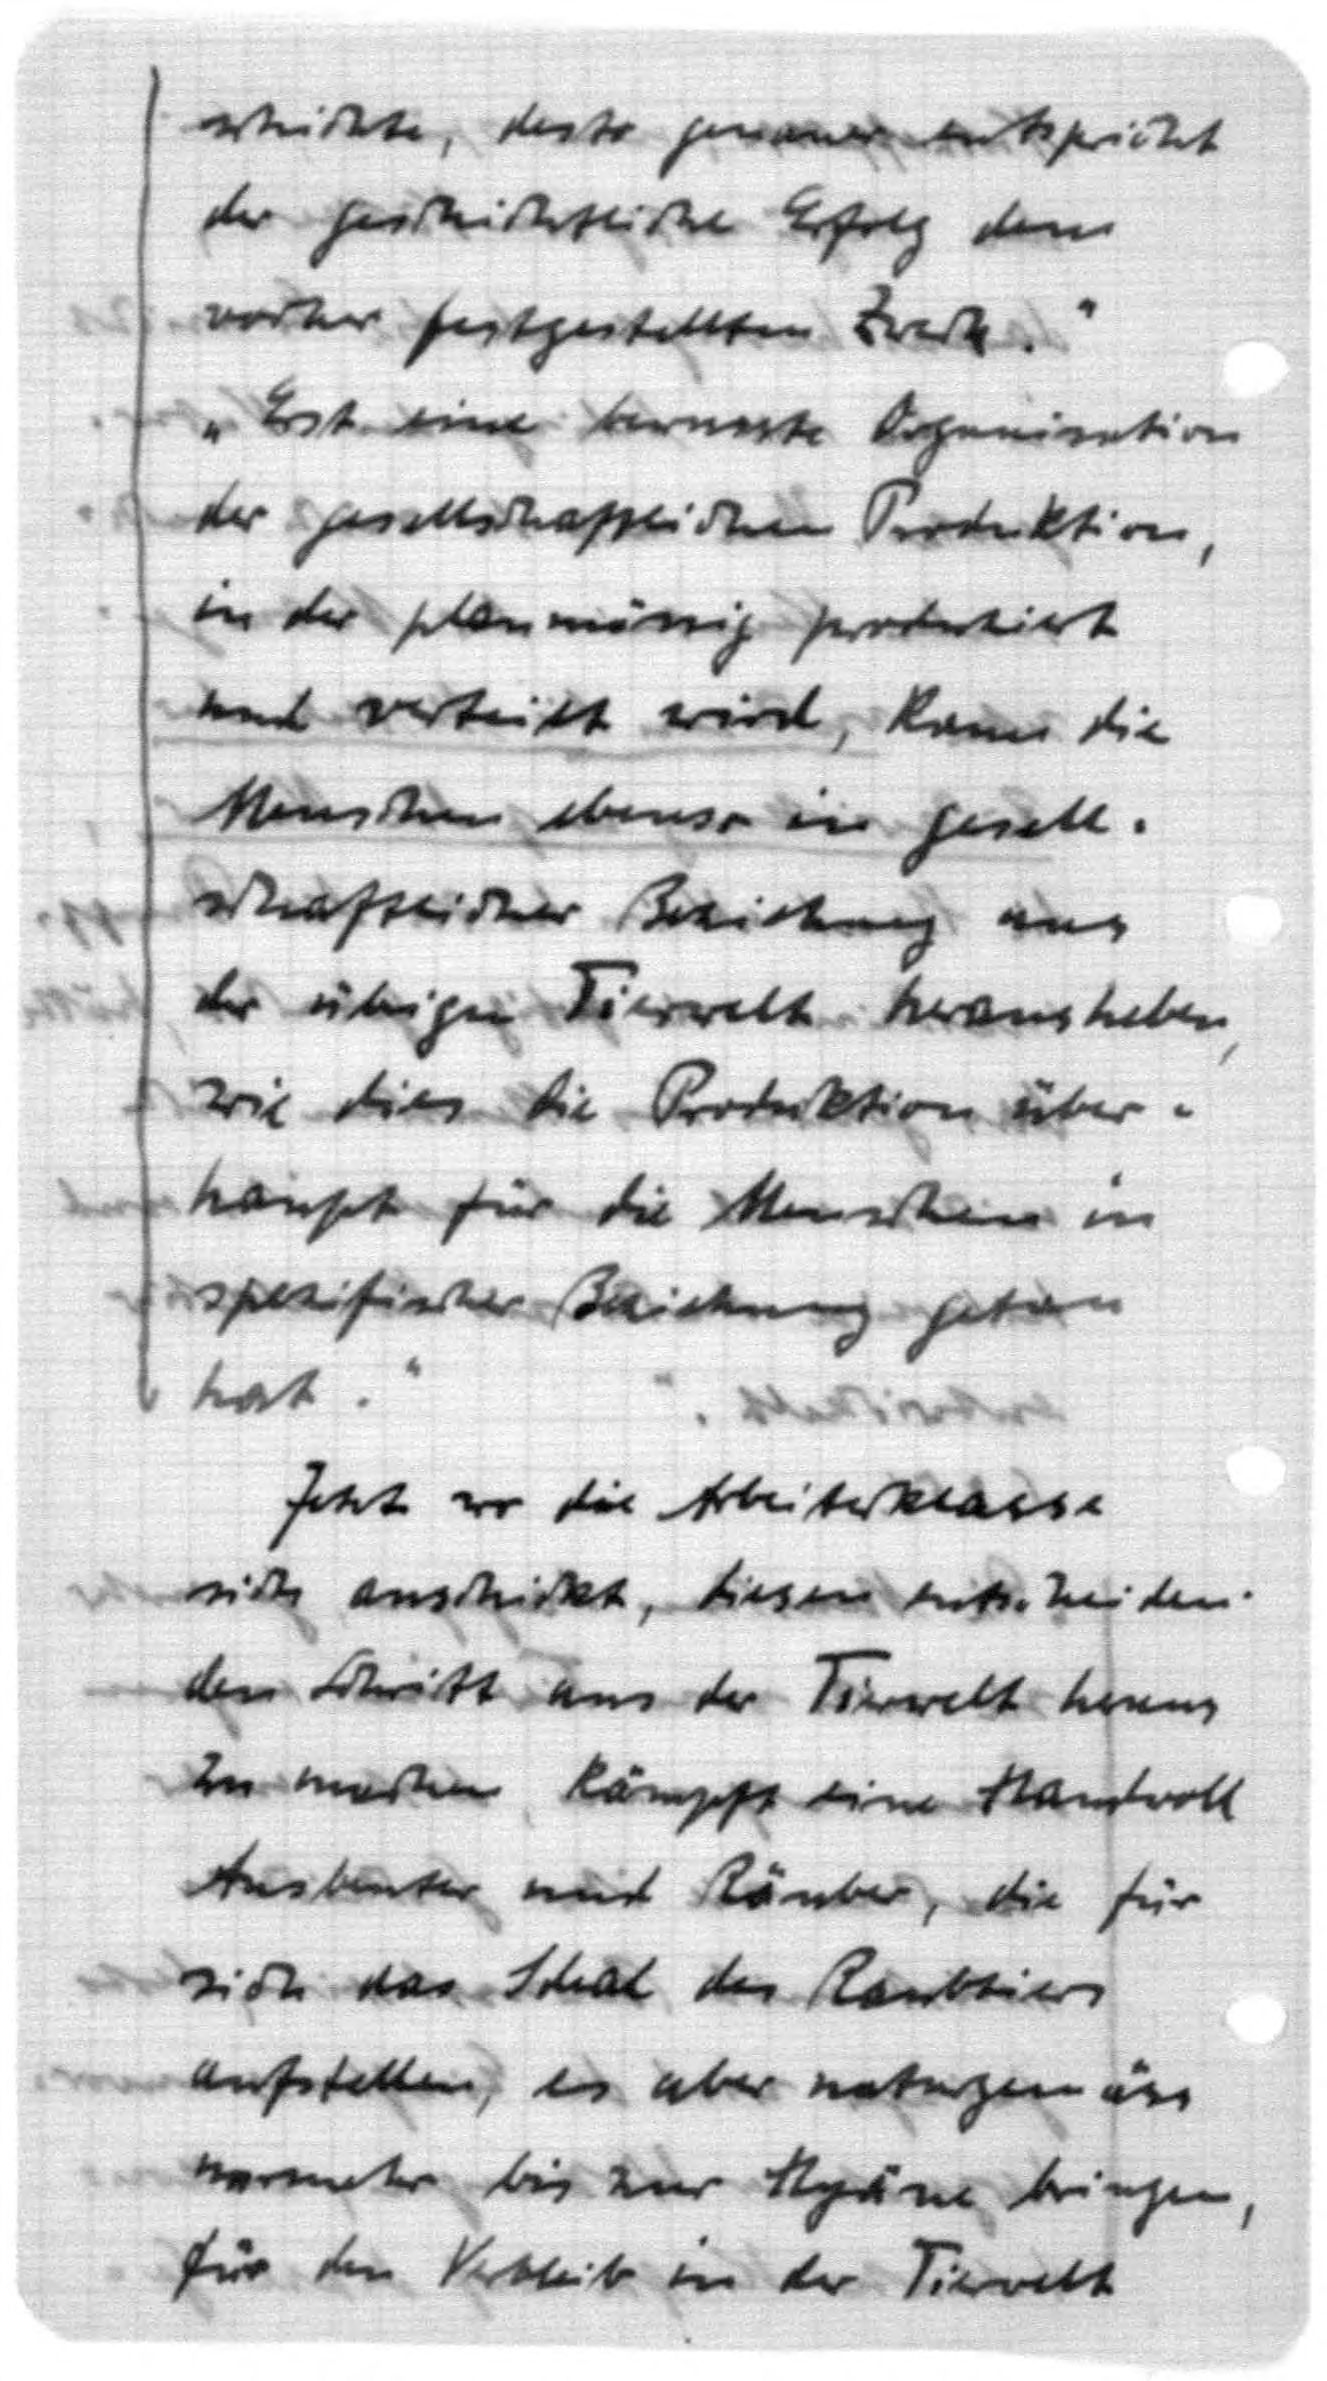 schichte, desto genauer entspricht
der geschichtliche Erfolg dem
vorher festgestellten Zweck."
„Erst eine bewusste Organisation
der gesellschaftlichen Produktion,
in der planmässig produziert
und verteilt wird, kann die
Menschen ebenso in gesell-
schaftlicher Beziehung aus
der übrigen Tierwelt herausheben,
wie dies die Produktion über-
haupt für die Menschen in
spezifischer Beziehung getan
hat."
Jetzt wo die Arbeiterklasse
sich anschickt, diesen entscheiden-
den Schritt aus der Tierwelt heraus
zu machen, kämpft eine Handvoll
Ausbeuter und Räuber, die für
sich das Ideal des Raubtiers
aufstellen, es aber naturgemäss
nurmehr bis zur Hyäne bringen,
für den Verbleib in der Tierwelt